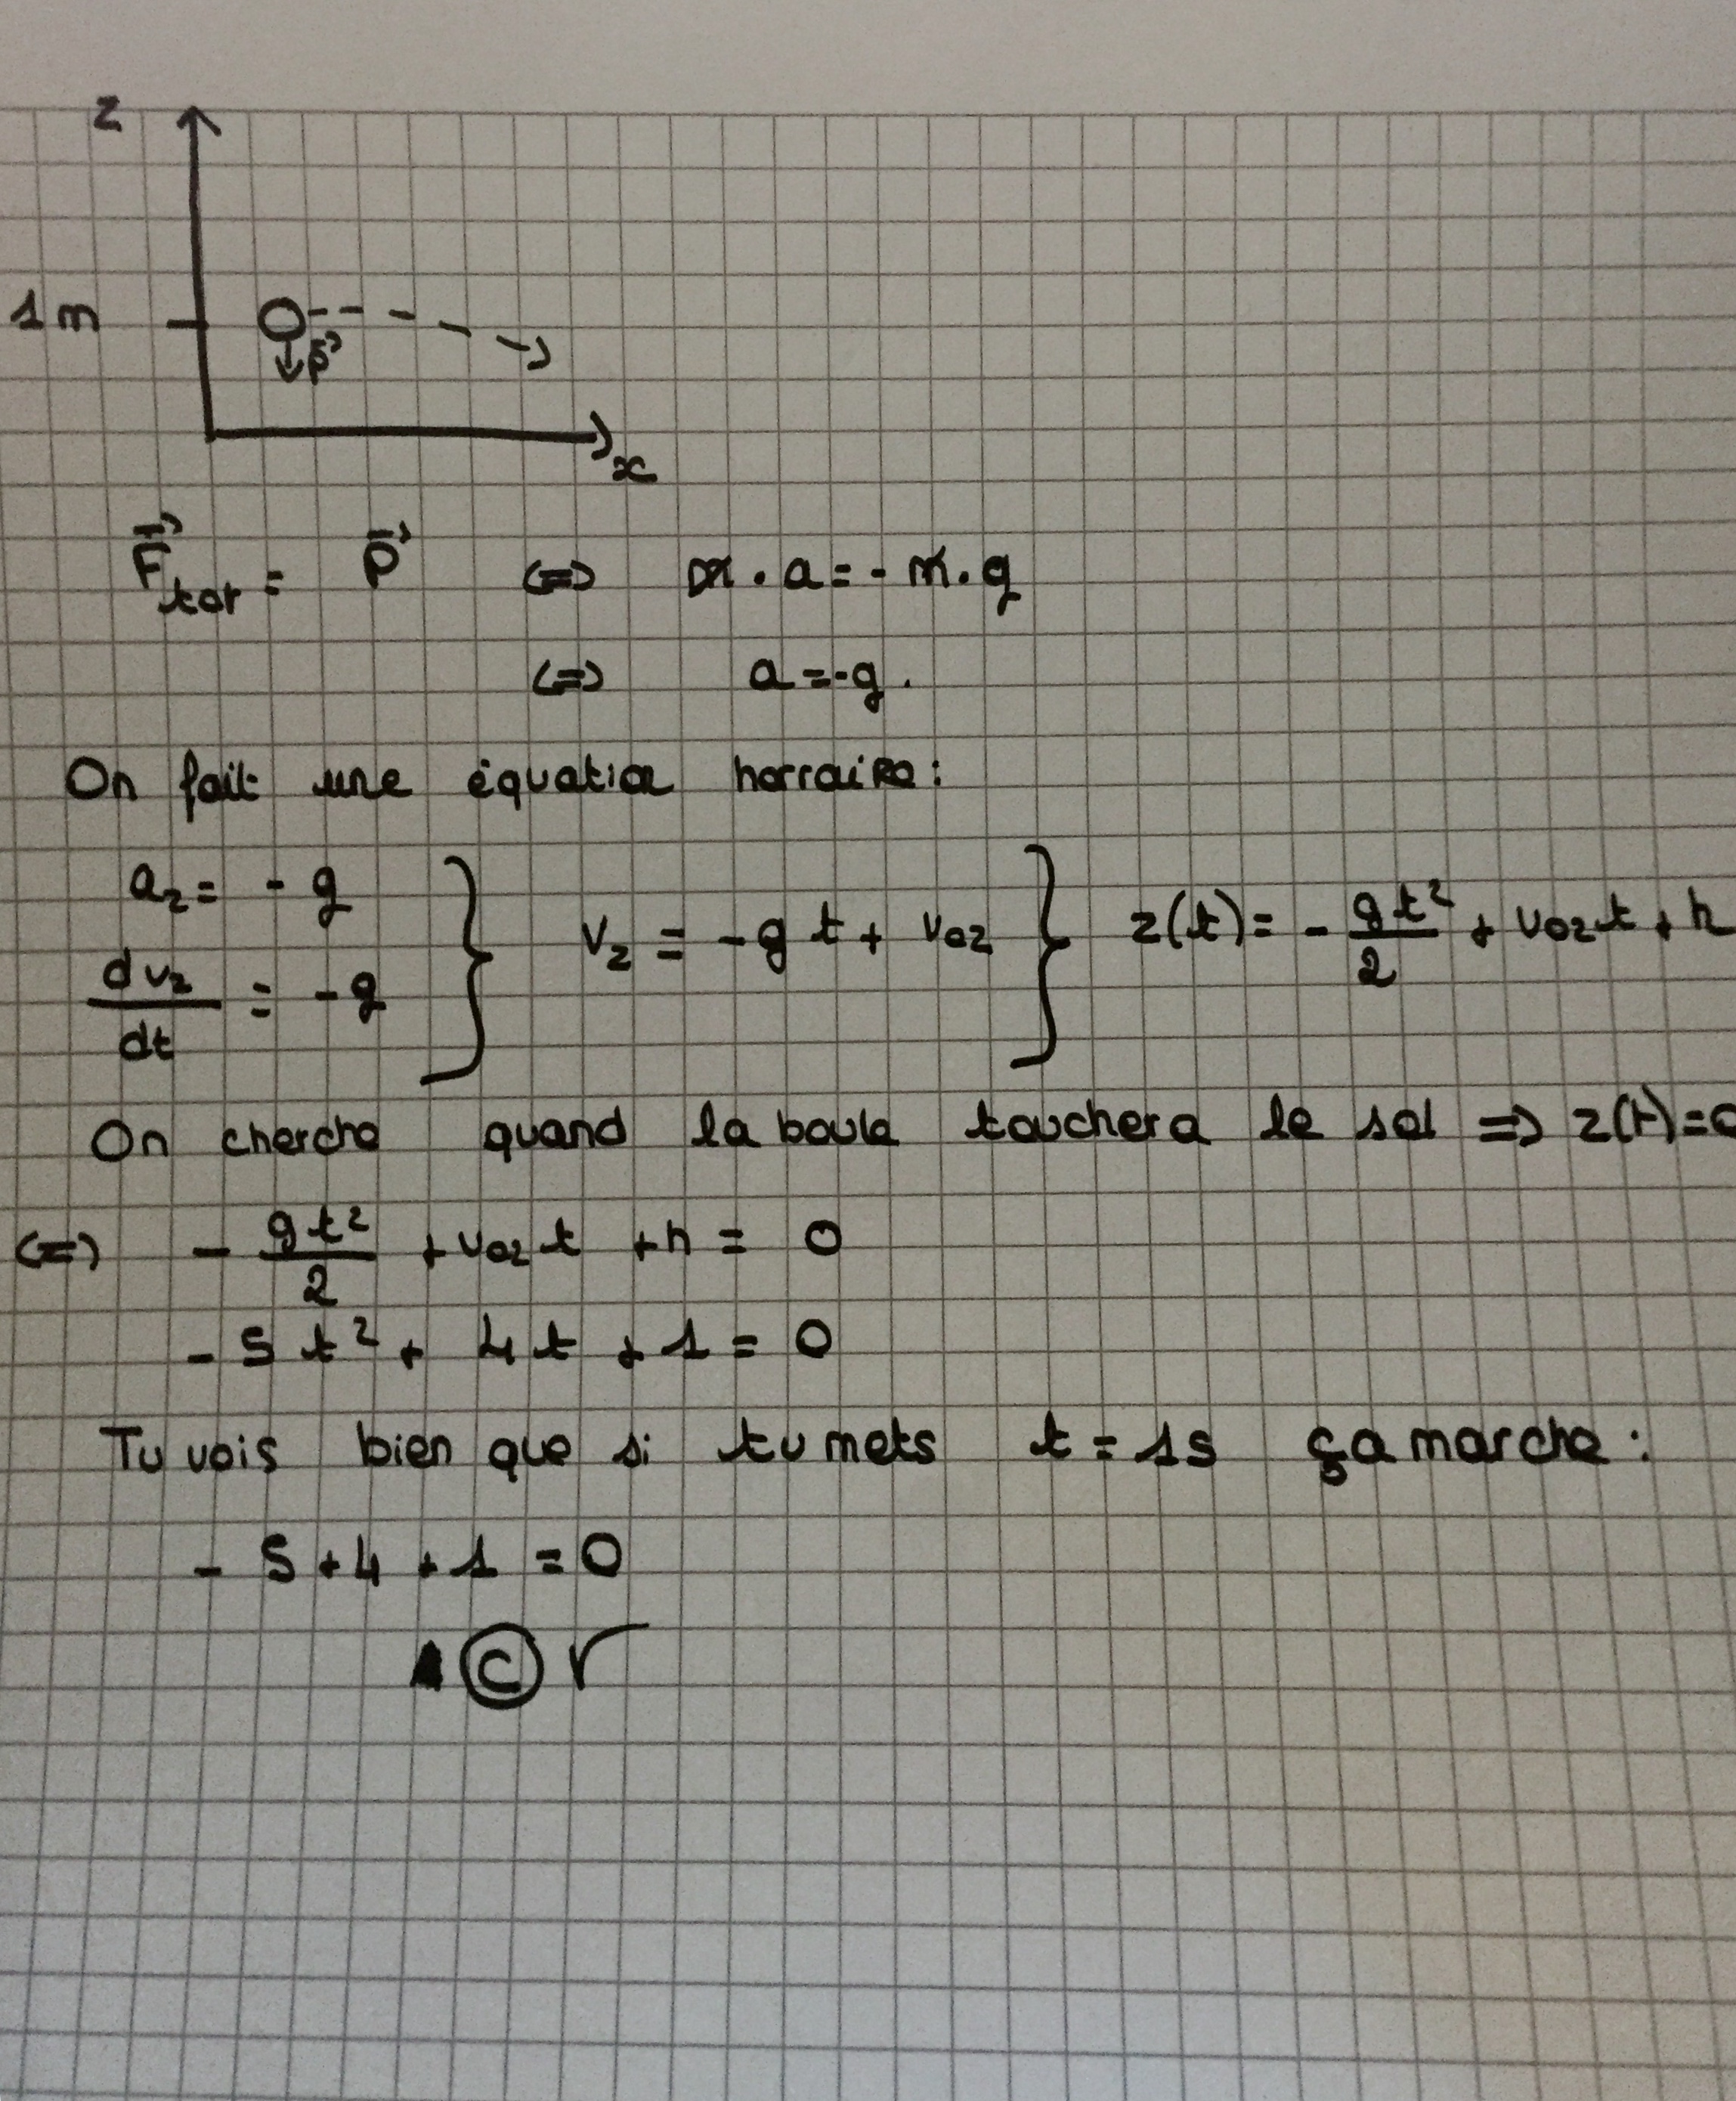 z
1 m
P⃗
x
F⃗tot = P⃗ (=) m . a = - m . g
(=) a = -g .
On fait une équation horraire :
az = - g
dvz/dt = - g
vz = - g t + voz
z(t) = - gt²/2 + voz t + h
On cherche quand la boule touchera le sol => z(t) = 0
(=) - gt²/2 + voz t + h = 0
- 5 t² + 4 t + 1 = 0
Tu vois bien que si tu mets t = 1s ça marche :
- 5 + 4 + 1 = 0
C